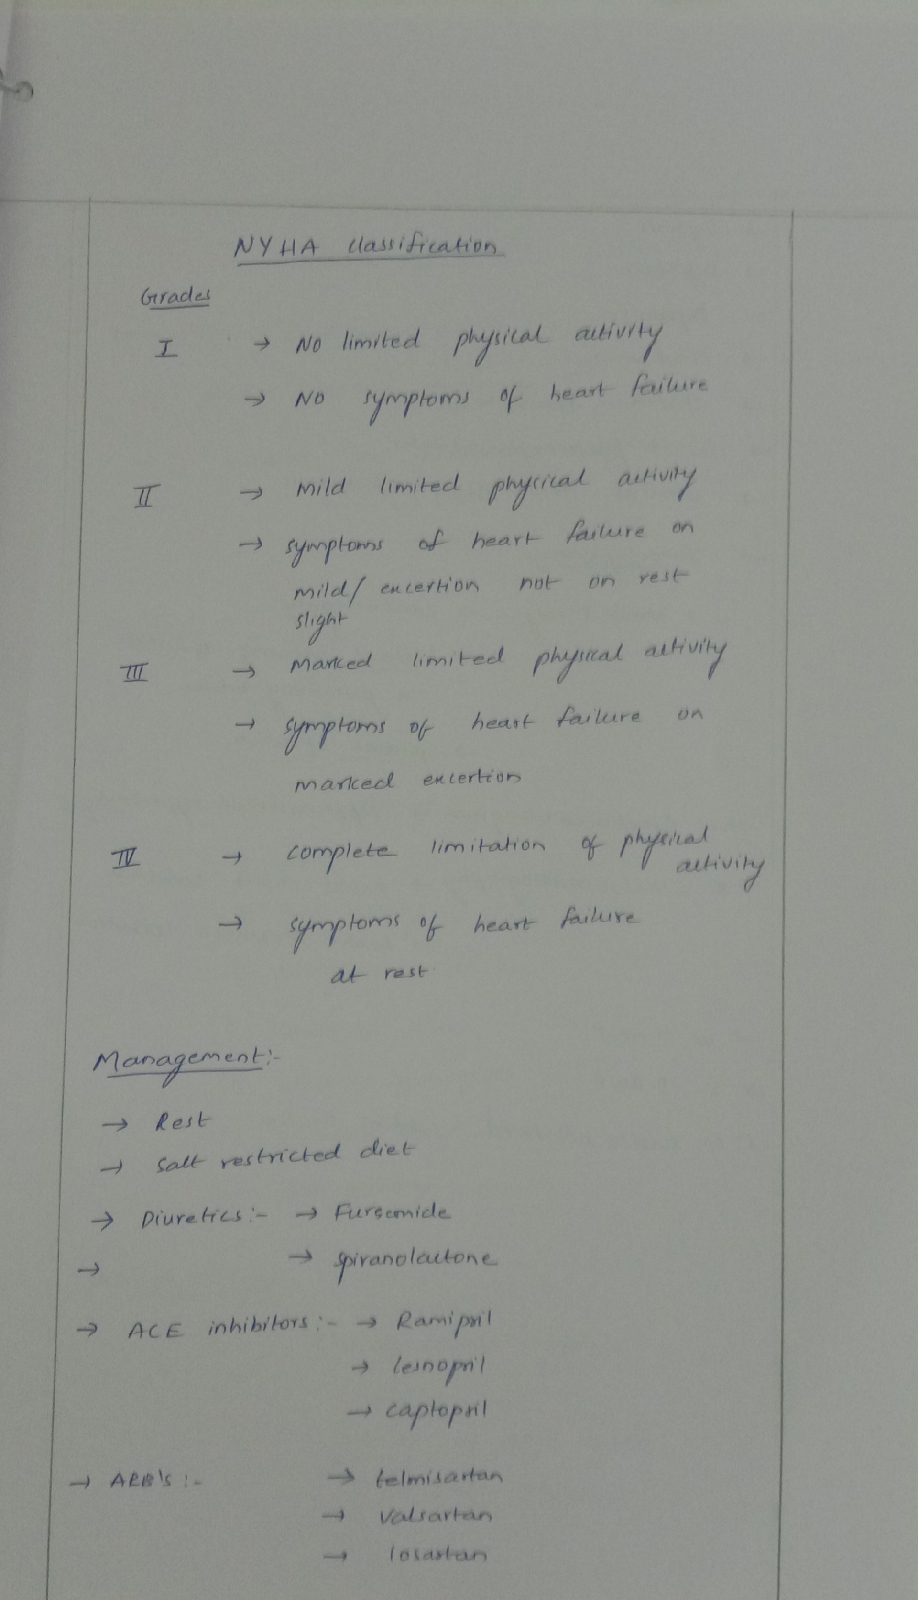 NYHA classification
Grades
I → No limited physical activity
→ No symptoms of heart failure
II → Mild limited physical activity
→ symptoms of heart failure on
mild/ excertion not on rest
slight
III → Marked limited physical activity
→ symptoms of heart failure on
marked excertion
IV → complete limitation of physical
activity
→ symptoms of heart failure
at rest
Management:-
→ Rest
→ Salt restricted diet
→ Diuretics:- → Fursemide
→ → spiranolactone
→ ACE inhibitors:- → Ramipril
→ lesnopril
→ captopril
→ ARB's :- → telmisartan
→ valsartan
→ losartan